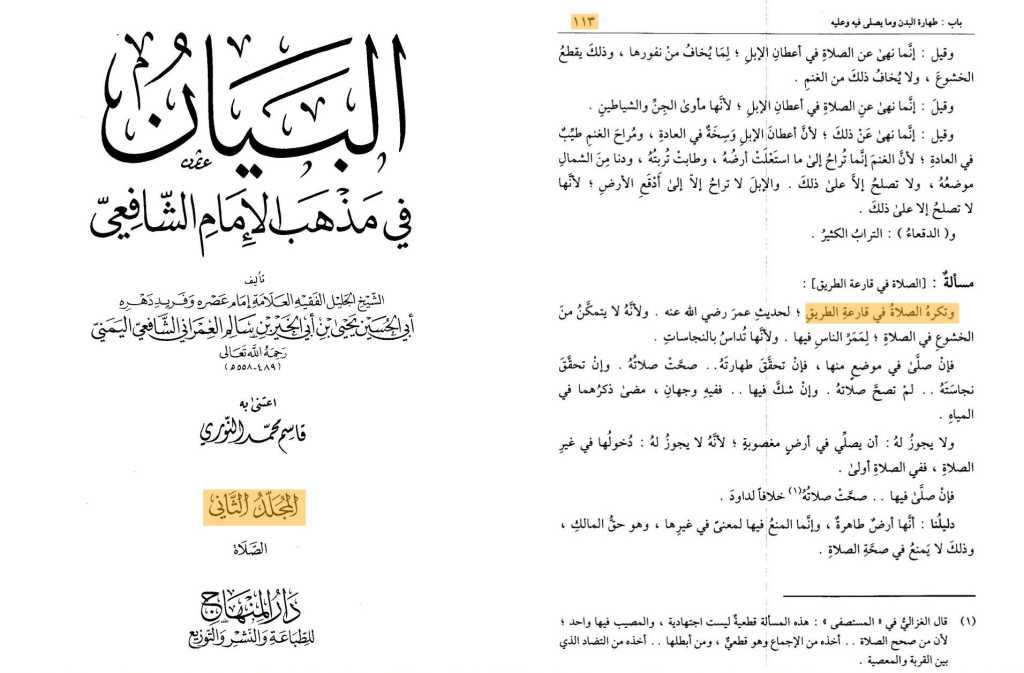 باب : طهارة البدن وما يصلى فيه وعليه
١١٣
وقيل : إنَّما نهىٰ عن الصلاةِ في أعطانِ الإبلِ ؛ لِمَا يُخافُ منْ نفورِها ، وذلكَ يقطعُ
الخشوعَ ، ولا يُخافُ ذلكَ منَ الغنمِ .
وقيلَ : إنَّما نهىٰ عنِ الصلاةِ في أعطانِ الإبلِ ؛ لأنَّها مأوىٰ الجِنِّ والشياطينِ .
وقيل : إنَّما نهىٰ عَنْ ذلكَ ؛ لأنَّ أعطانَ الإبلِ وَسِخَةٌ في العادةِ ، ومُراحَ الغنمِ طيِّبٌ
في العادةِ ؛ لأنَّ الغنمَ إنَّما تُراحُ إلىٰ ما استَعْلَتْ أرضُهُ ، وطابتْ تُربتُهُ ، ودنا مِنَ الشمالِ
موضعُهُ ، ولا تصلحُ إلاَّ علىٰ ذلكَ . والإبلَ لا تراحُ إلاَّ إلىٰ أَدْقَعِ الأرضِ ؛ لأنَّها
لا تصلحُ إلا علىٰ ذلكَ .
و( الدقعاءُ ) : الترابُ الكثيرُ .
مسألةٌ : [الصلاة في قارعة الطريق] :
وتكرهُ الصلاةُ في قارعةِ الطريقِ ؛ لحديثِ عمرَ رضي الله عنه . ولأنَّهُ لا يتمكَّنُ منَ
الخشوعِ في الصلاةِ ؛ لِمَمَرِّ الناسِ فيها . ولأنَّها تُداسُ بالنجاساتِ .
فإنْ صلَّىٰ في موضعٍ منها ، فإنْ تحقَّقَ طهارتَهُ.. صحَّتْ صلاتُهُ . وإنْ تحقَّقَ
نجاستَهُ .. لمْ تصحَّ صلاتهُ . وإنْ شكَّ فيها .. ففيهِ وجهانِ ، مضىٰ ذكرُهما في
المياهِ .
ولا يجوزُ لهُ : أن يصلِّي في أرضٍ مغصوبةٍ ؛ لأنَّهُ لا يجوزُ لهُ : دُخولُها في غيرِ
الصلاةِ ، ففي الصلاةِ أولىٰ .
فإنْ صلَّىٰ فيها .. صحَّتْ صلاتُهُ(١) خلافاً لداودَ .
دليلُنا : أنَّها أرضٌ طاهرةٌ ، وإنَّما المنعُ فيها لمعنىً في غيرِها ، وهو حقُّ المالكِ ،
وذلكَ لا يَمنعُ في صحَّةِ الصلاةِ .
(١) قال الغزاليُّ في « المستصفى » : هذه المسألة قطعيةٌ ليست اجتهادية ، والمصيب فيها واحد ؛
لأن من صحح الصلاة .. أخذه من الإجماع وهو قطعيٌّ ، ومن أبطلها .. أخذه من التضاد الذي
بين القربة والمعصية .
البَيَانُ
في مَذْهَبِ الإمَامِ الشَّافِعِيّ
تأليف
الشَّيْخِ الجَليْلِ الفَقِيْهِ العَلاَّمَةِ إمَامِ عَصْرِهِ وَفَرِيدِ دَهْرِهِ
أبي الحُسَيْن يَحْيَىٰ بْن أبي الخَيْر بْن سَالِمٍ العِمْرَانيّ الشَّافِعيّ اليَمَنيّ
رَحِمَهُ اللهُ تَعَالىٰ
(٤٨٩-٥٥٨ه)
اعتنىٰ به
قاسم محمّد النّوري
المُجَلَّدُ الثَّاني
الصَّلاَة
دَارُ المِنْهَاج
للطِّبَاعَةِ وَالنَّشْرِ وَالتَّوْزِيع